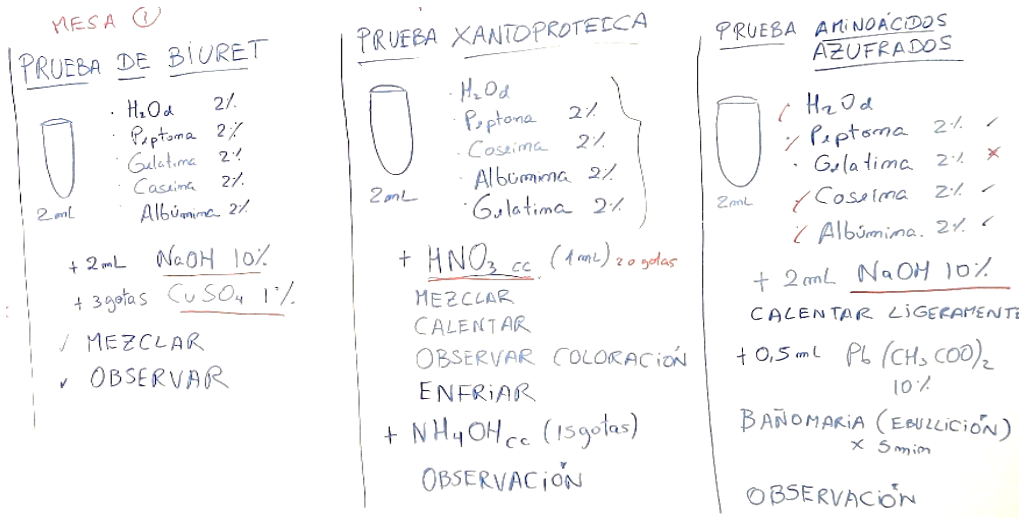 MESA ①
PRUEBA DE BIURET
· H₂Od 2%
· Peptona 2%
· Gelatina 2%
· Caseina 2%
Albúmina 2%
2mL
+ 2mL NaOH 10%
+ 3gotas CuSO₄ 1%
✓ MEZCLAR
✓ OBSERVAR
PRUEBA XANTOPROTEICA
· H₂Od
· Peptona 2%
· Caseina 2%
· Albúmina 2%
· Gelatina 2%
2mL
+ HNO₃ cc (1mL) 20 gotas
MEZCLAR
CALENTAR
OBSERVAR COLORACIÓN
ENFRIAR
+ NH₄OH cc (15gotas)
OBSERVACIÓN
PRUEBA AMINOÁCIDOS
AZUFRADOS
H₂Od
Peptona 2% ✓
· Gelatina 2% ×
Caseina 2% ✓
Albúmina. 2% ✓
2mL
+ 2mL NaOH 10%
CALENTAR LIGERAMENTE
+ 0,5mL Pb (CH₃COO)₂
10%
BAÑOMARIA (EBULLICIÓN)
× 5min
OBSERVACIÓN